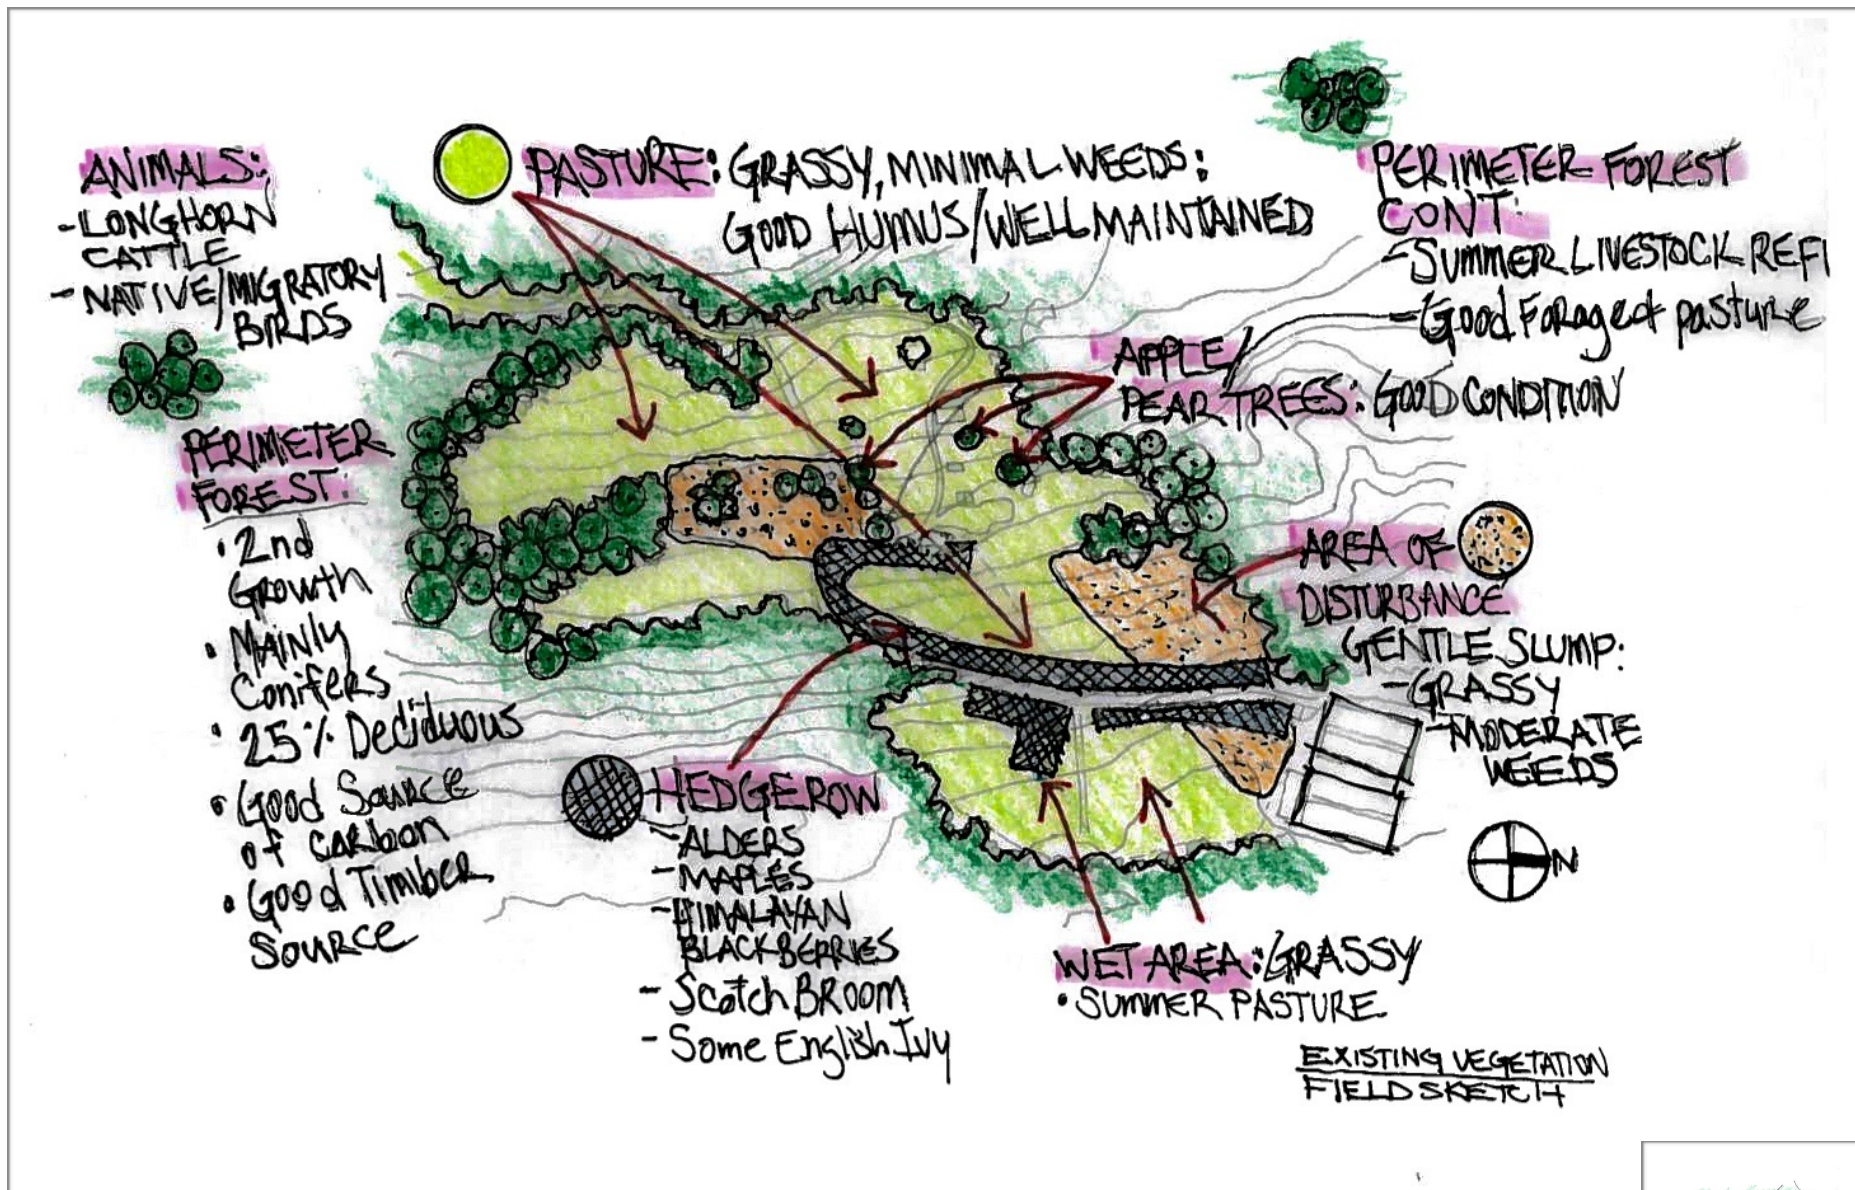 ANIMALS:
- LONGHORN
CATTLE
- NATIVE/MIGRATORY
BIRDS
PASTURE: GRASSY, MINIMAL WEEDS:
GOOD HUMUS/WELL MAINTAINED
PERIMETER FOREST
CONT:
- SUMMER LIVESTOCK REFI
- Good Foraged pasture
APPLE/
PEAR TREES: GOOD CONDITION
PERIMETER
FOREST:
• 2nd
Growth
• MAINLY
Conifers
• 25% Deciduous
• Good Source
of carbon
• Good Timber
Source
AREA OF
DISTURBANCE
GENTLE SLUMP:
- GRASSY
- MODERATE
WEEDS
HEDGEROW
- ALDERS
- MAPLES
- HIMALAYAN
BLACKBERRIES
- Scotch BROOM
- Some English Ivy
N
WET AREA: GRASSY
• SUMMER PASTURE
EXISTING VEGETATION
FIELD SKETCH